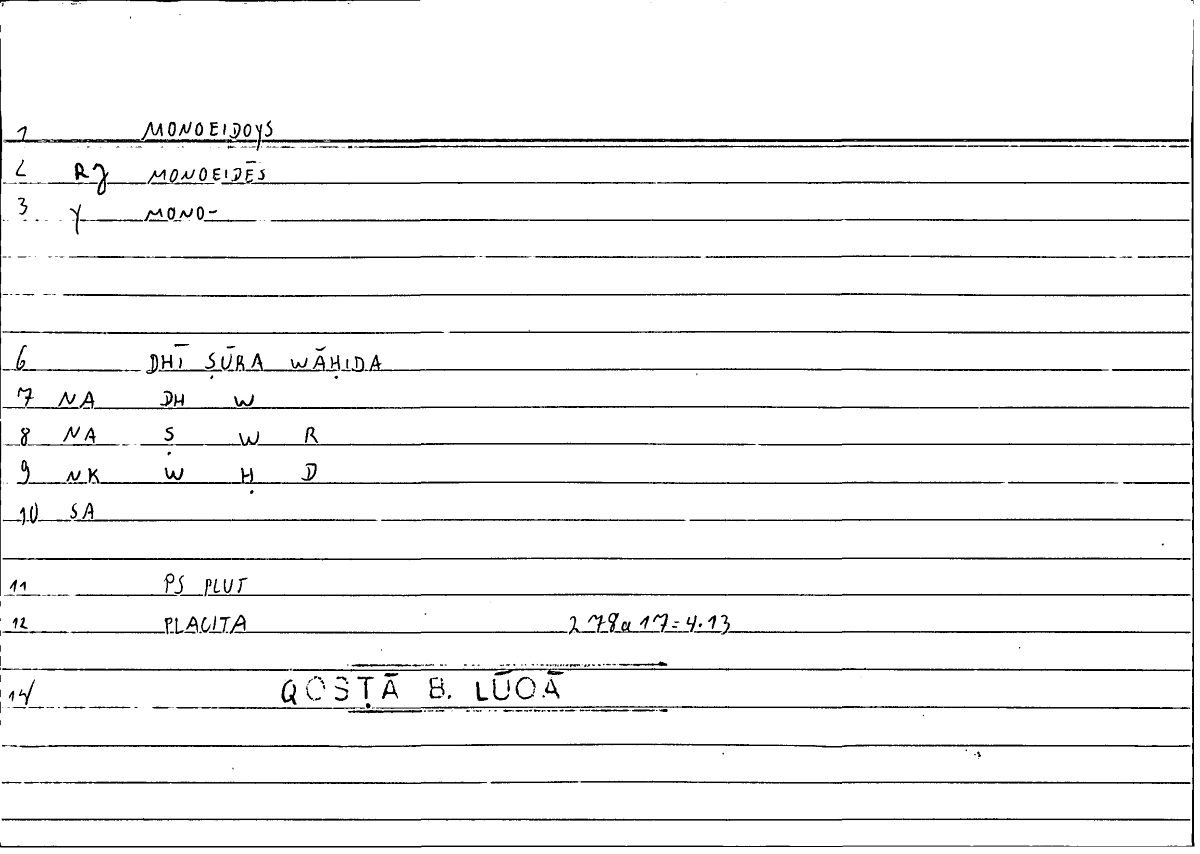 1 MONOEIDOYS
2 RJ MONOEIDĒS
3 Y MONO-
6 DHĪ ṢŪRA WĀḤIDA
7 NA DH W
8 NA Ṣ W R
9 NK W Ḥ D
10 SA
11 PS PLUT
12 PLACITA 278a17=4.13
14/ QOSṬĀ B. LŪQĀ